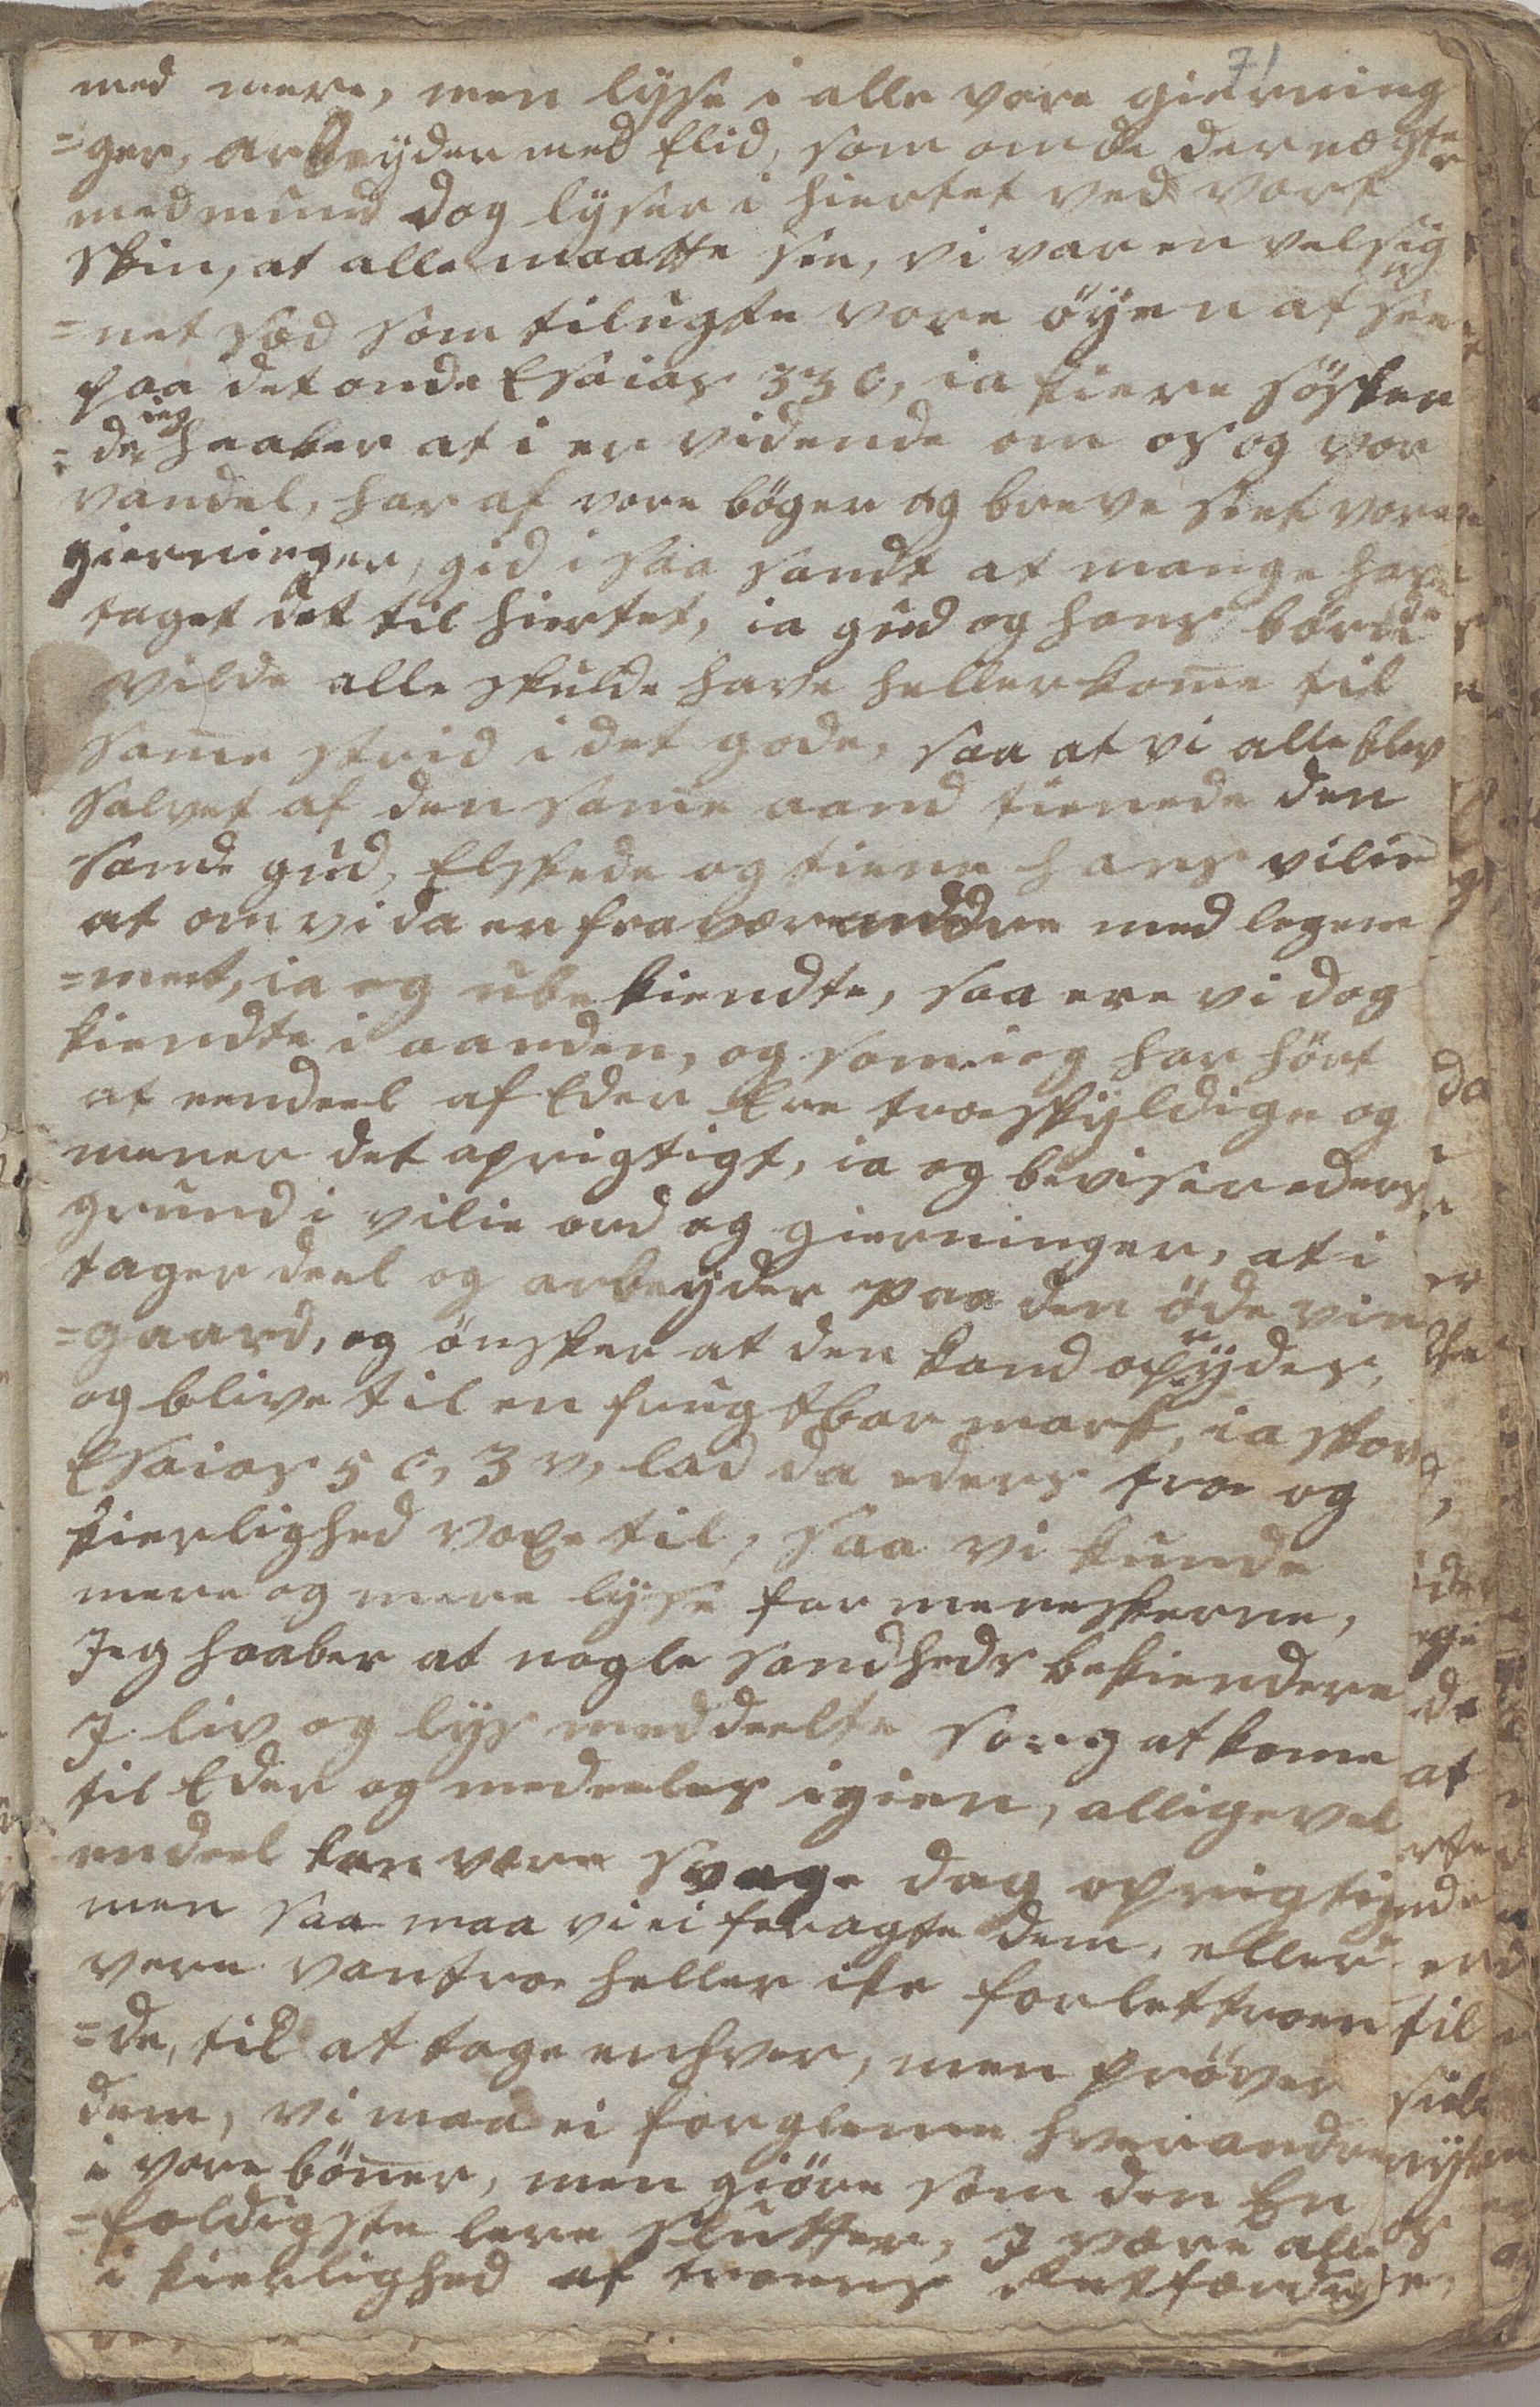 71
med mere, men lyse i alle vore gierning
=ger, arbeyder med flid, som om de der nægter
med mund dog lyser i hiertet ved vort
skin, at alle maatte see, vi var en velsig
=net sæd som tilügte vore öyen at see
paa det onde Esaias 33 c, ia kiere sösken
=de ieg haaber at i er vidende om os og vor
vandel, har af vore böger og breve seet vore
gierninger, gid i saa sandt at mange har
taget det til hiertet, ia gud og hans börn
vilde alle skulde have heller kome til
same strid i det gode, saa at vi alle blev
salvet af den same aand tienede den
sande gud, Elskede og tiene hans vilie
at om vi da er fraværendene med legem
=met, ia og ube kiendte, saa ere vi dog
kiendte i aanden, og som ieg har hört
at eendeel af Eder Ere troeskyldige og
mener det oprigtigt, ia og beviser eders
grund i vilie ord og gierninger, at i
tager deel og arbeyder paa den öde vin
=gaard, og önsker at den kand opryddes,
og blive til en frugtbar mark, ia skov
Esaias 5 c, 3 v, lad da eders troe og
kierlighed voxe til, saa vi kunde
mere og mere lyse for meneskerne,
Jeg haaber at nogle sandheds bekiendere
J liv og lys meddeelte sorg at kome
til Eder og medeeles igien, alligevel
endeel kan være svage dog oprigtig
men saa maa vi ei foragte dem, eller
vere vantroe heller ike for lettroen
=de, til at tage enhver, men pröver
dem, vi maa ei forgleme hverandre
i vore böner, men giöre som den En
=foldigste lere slutter, J være alle
i kierlighed af troens Retfærdige,